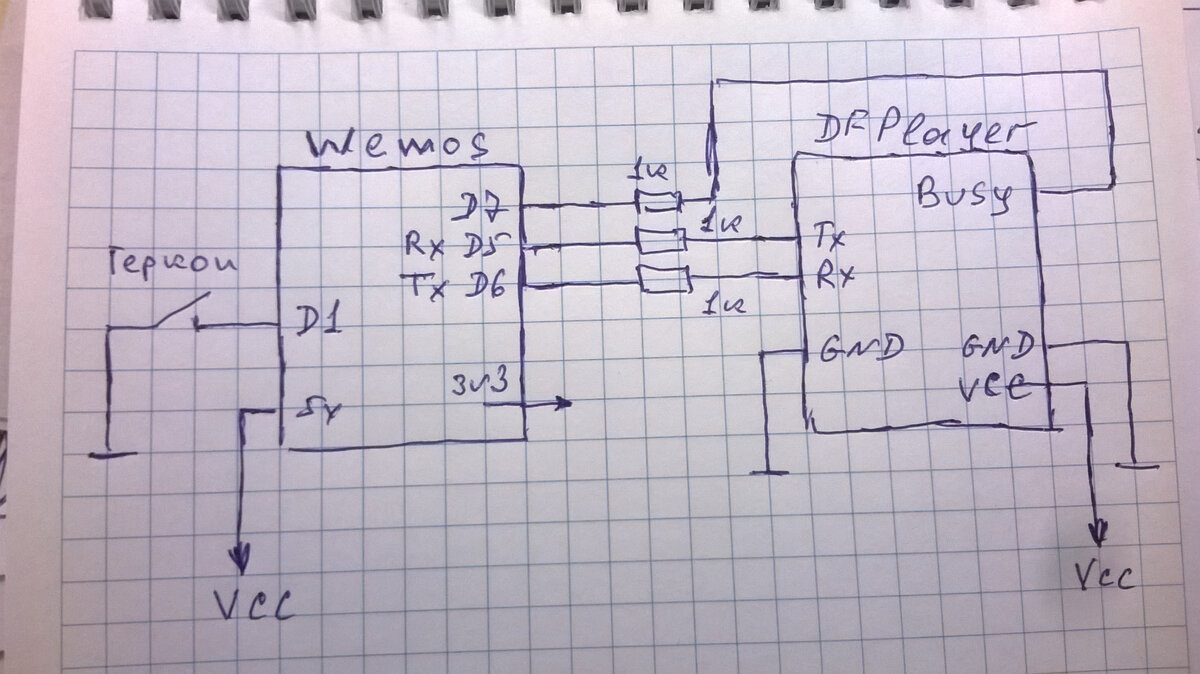 Wemos
DFPlayer
1к
D7
Busy
1к
Rx D5
Tx
Геркон
Tx D6
Rx
1к
D1
GND
GND
3v3
VCC
5v
VCC
VCC